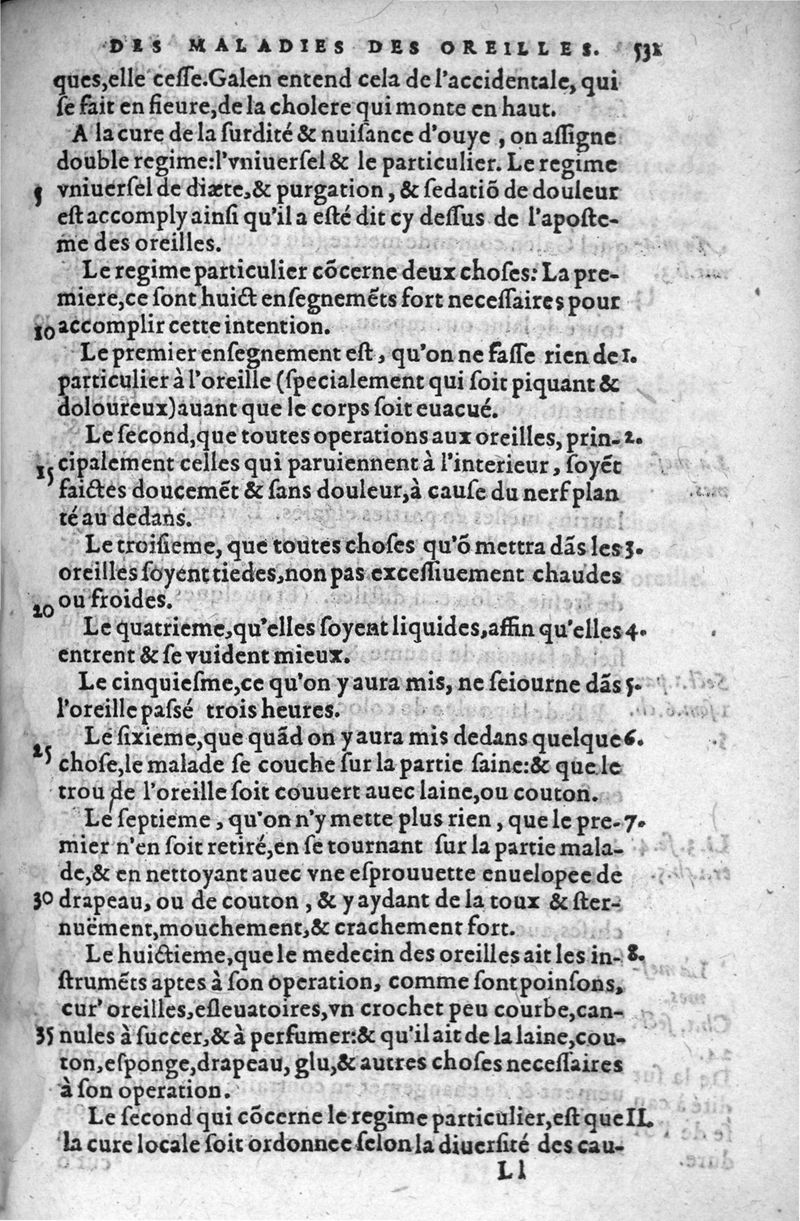 DES MALADIES DES OREILLES. 531
ques,elle ceſſe.Galen entend cela de l'accidentale, qui
ſe fait en fieure,de la cholere qui monte en haut.
A la cure de la ſurdité & nuiſance d'ouye , on aſſigne
double regime:l'vniuerſel & le particulier. Le regime
5 vniuerſel de diæte,& purgation, & ſedatiõ de douleur
eſt accomply ainſi qu'il a eſté dit cy deſſus de l'apoſte-
me des oreilles.
Le regime particulier cõcerne deux choſes: La pre-
miere,ce ſont huict enſegnemẽts fort neceſſaires pour
10 accomplir cette intention.
Le premier enſegnement eſt, qu'on ne faſſe rien de 1.
particulier à l'oreille (ſpecialement qui ſoit piquant &
doloureux)auant que le corps ſoit euacué.
Le ſecond,que toutes operations aux oreilles, prin- 2.
15 cipalement celles qui paruiennent à l'interieur, ſoyẽt
faictes doucemẽt & ſans douleur,à cauſe du nerf plan
té au dedans.
Le troiſieme, que toutes choſes qu'õ mettra dãs les 3.
oreilles ſoyent tiedes,non pas exceſſiuement chaudes
20 ou froides.
Le quatrieme,qu'elles ſoyent liquides,affin qu'elles 4.
entrent & ſe vuident mieux.
Le cinquieſme,ce qu'on y aura mis, ne ſeiourne dãs 5.
l'oreille paſſé trois heures.
Le ſixieme,que quãd on y aura mis dedans quelque 6.
25 choſe,le malade ſe couche ſur la partie ſaine:& que le
trou de l'oreille ſoit couuert auec laine,ou couton.
Le ſeptieme , qu'on n'y mette plus rien , que le pre- 7.
mier n'en ſoit retiré,en ſe tournant ſur la partie mala-
de,& en nettoyant auec vne eſprouuette enuelopee de
30 drapeau, ou de couton , & y aydant de la toux & ſter-
nuëment,mouchement,& crachement fort.
Le huictieme,que le medecin des oreilles ait les in- 8.
ſtrumẽts aptes à ſon operation, comme ſont poinſons,
cur' oreilles,eſleuatoires,vn crochet peu courbe,can-
35 nules à ſuccer,& à perfumer:& qu'il ait de la laine,cou-
ton,eſponge,drapeau, glu,& autres choſes neceſſaires
à ſon operation.
Le ſecond qui cõcerne le regime particulier,eſt que II.
la cure locale ſoit ordonnee ſelon la diuerſité des cau-
Ll